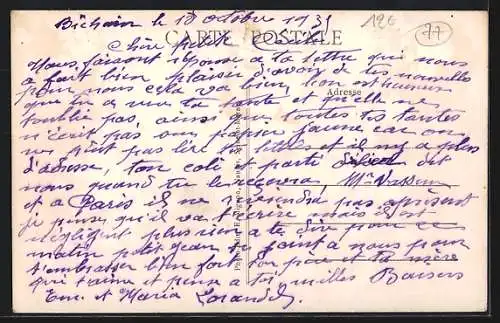 Bichain le 18 octobre 1931
126
77
CARTE POSTALE
Chère petite
Nous faisont réponse a ta lettre qui nous
a fait bien plaisir d'avoir de tes nouvelles
pour nous cela va bien, bon est heureux
Adresse
que tu a vue ta tante et qu'elle ne
t'oublie pas, ainsi que toutes tes tantes
n'écrit pas sur papier jaune car on
ne peut pas lire ta lettre et il n'y a plus
d'adresse, ton coli et parti dit
nous quand tu le recevera, Mr
et a Paris il ne reviendra pas apresent
je pense qu'il va t'ecrire mais il est
négligent plus rien a te dire pour ce
matin petit Jean se joint a nous pour
t'embrasser bien fort ton père et ta mère
qui t'aime et pense a toi, milles Baisers
et Maria